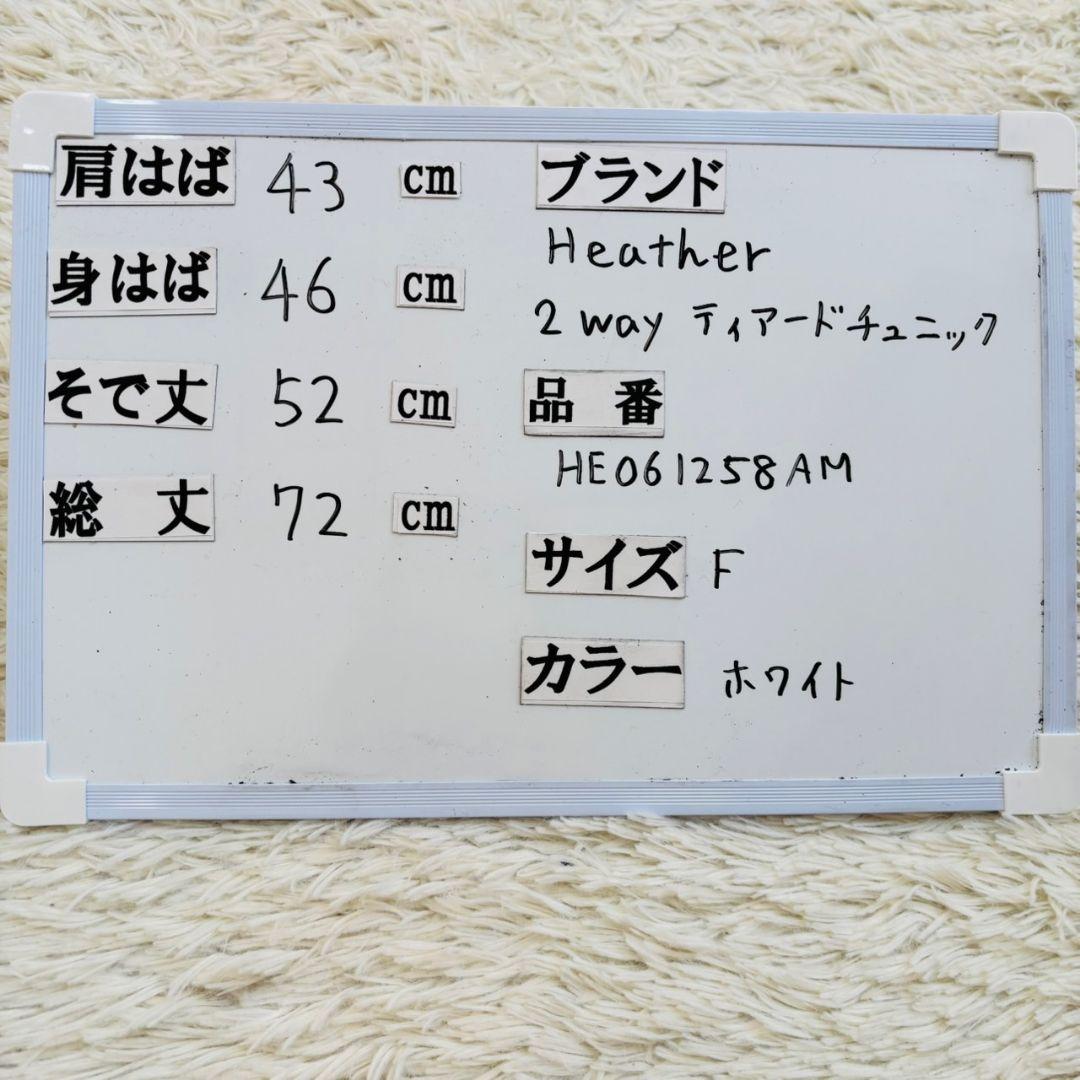 肩はば 43 cm
身はば 46 cm
そで丈 52 cm
総 丈 72 cm
ブランド
Heather
2way ティアードチュニック
品 番
HE061258AM
サイズ F
カラー ホワイト